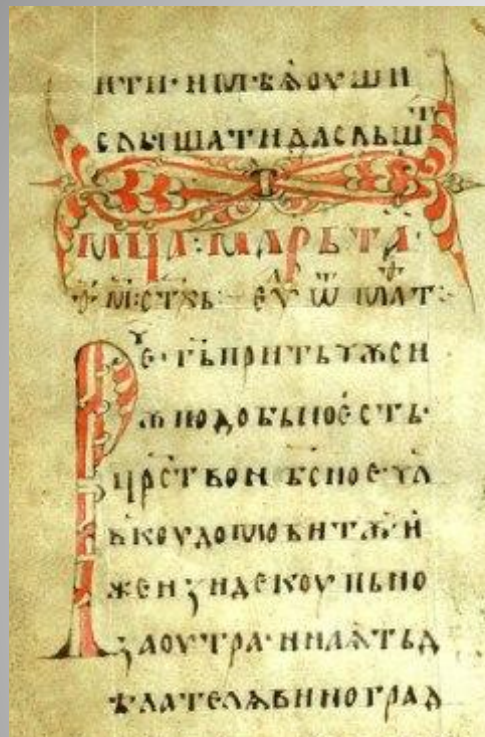 ити·имѣѩоуши
слышатидаслышⷮ
мца·марьта·
ѳ҃·м҃·стхъ–еу ѿ мат:
Рⷱе·гъ҃притъчѫси
ѭподобьноестъ·
црⷭтвонбⷭноечл
вкоудомовитѫи
жеизидекоупьно
заоутра·инаѩтъд
ѣлателѧвиноград